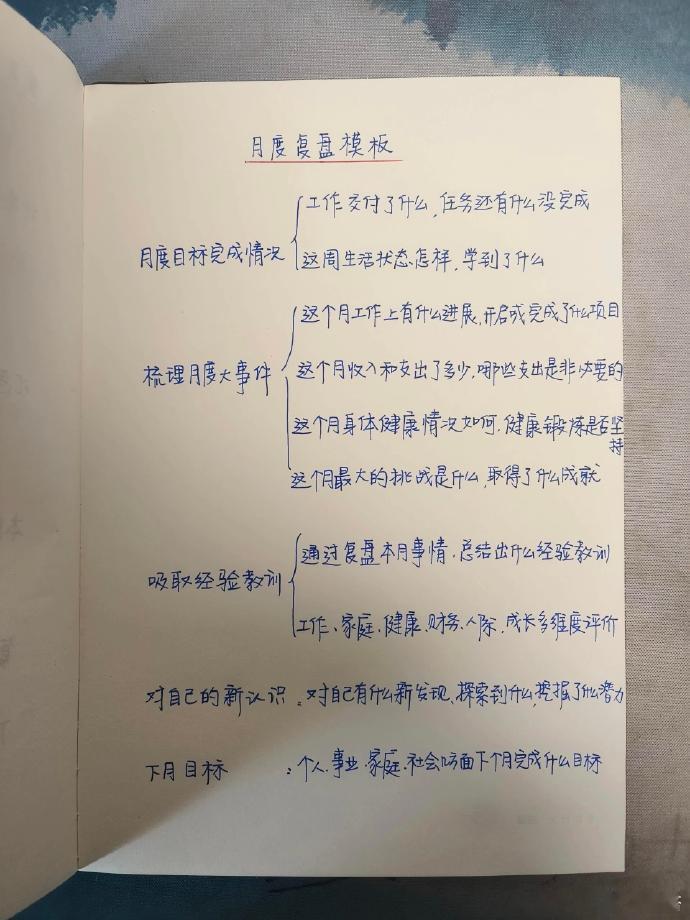 月度复盘模板
工作交付了什么,任务还有什么没完成
月度目标完成情况
这周生活状态怎样,学到了什么
这个月工作上有什么进展,开启或完成了什么项目
梳理月度大事件
这个月收入和支出了多少,哪些支出是非必要的
这个月身体健康情况如何,健康锻炼是否坚持
这个月最大的挑战是什么,取得了什么成就
通过复盘本月事情,总结出什么经验教训
吸取经验教训
工作、家庭、健康、财务、人际、成长多维度评价
对自己的新认识:对自己有什么新发现,探索到什么,挖掘了什么潜力
下月目标:个人、事业、家庭、社会方面下个月完成什么目标